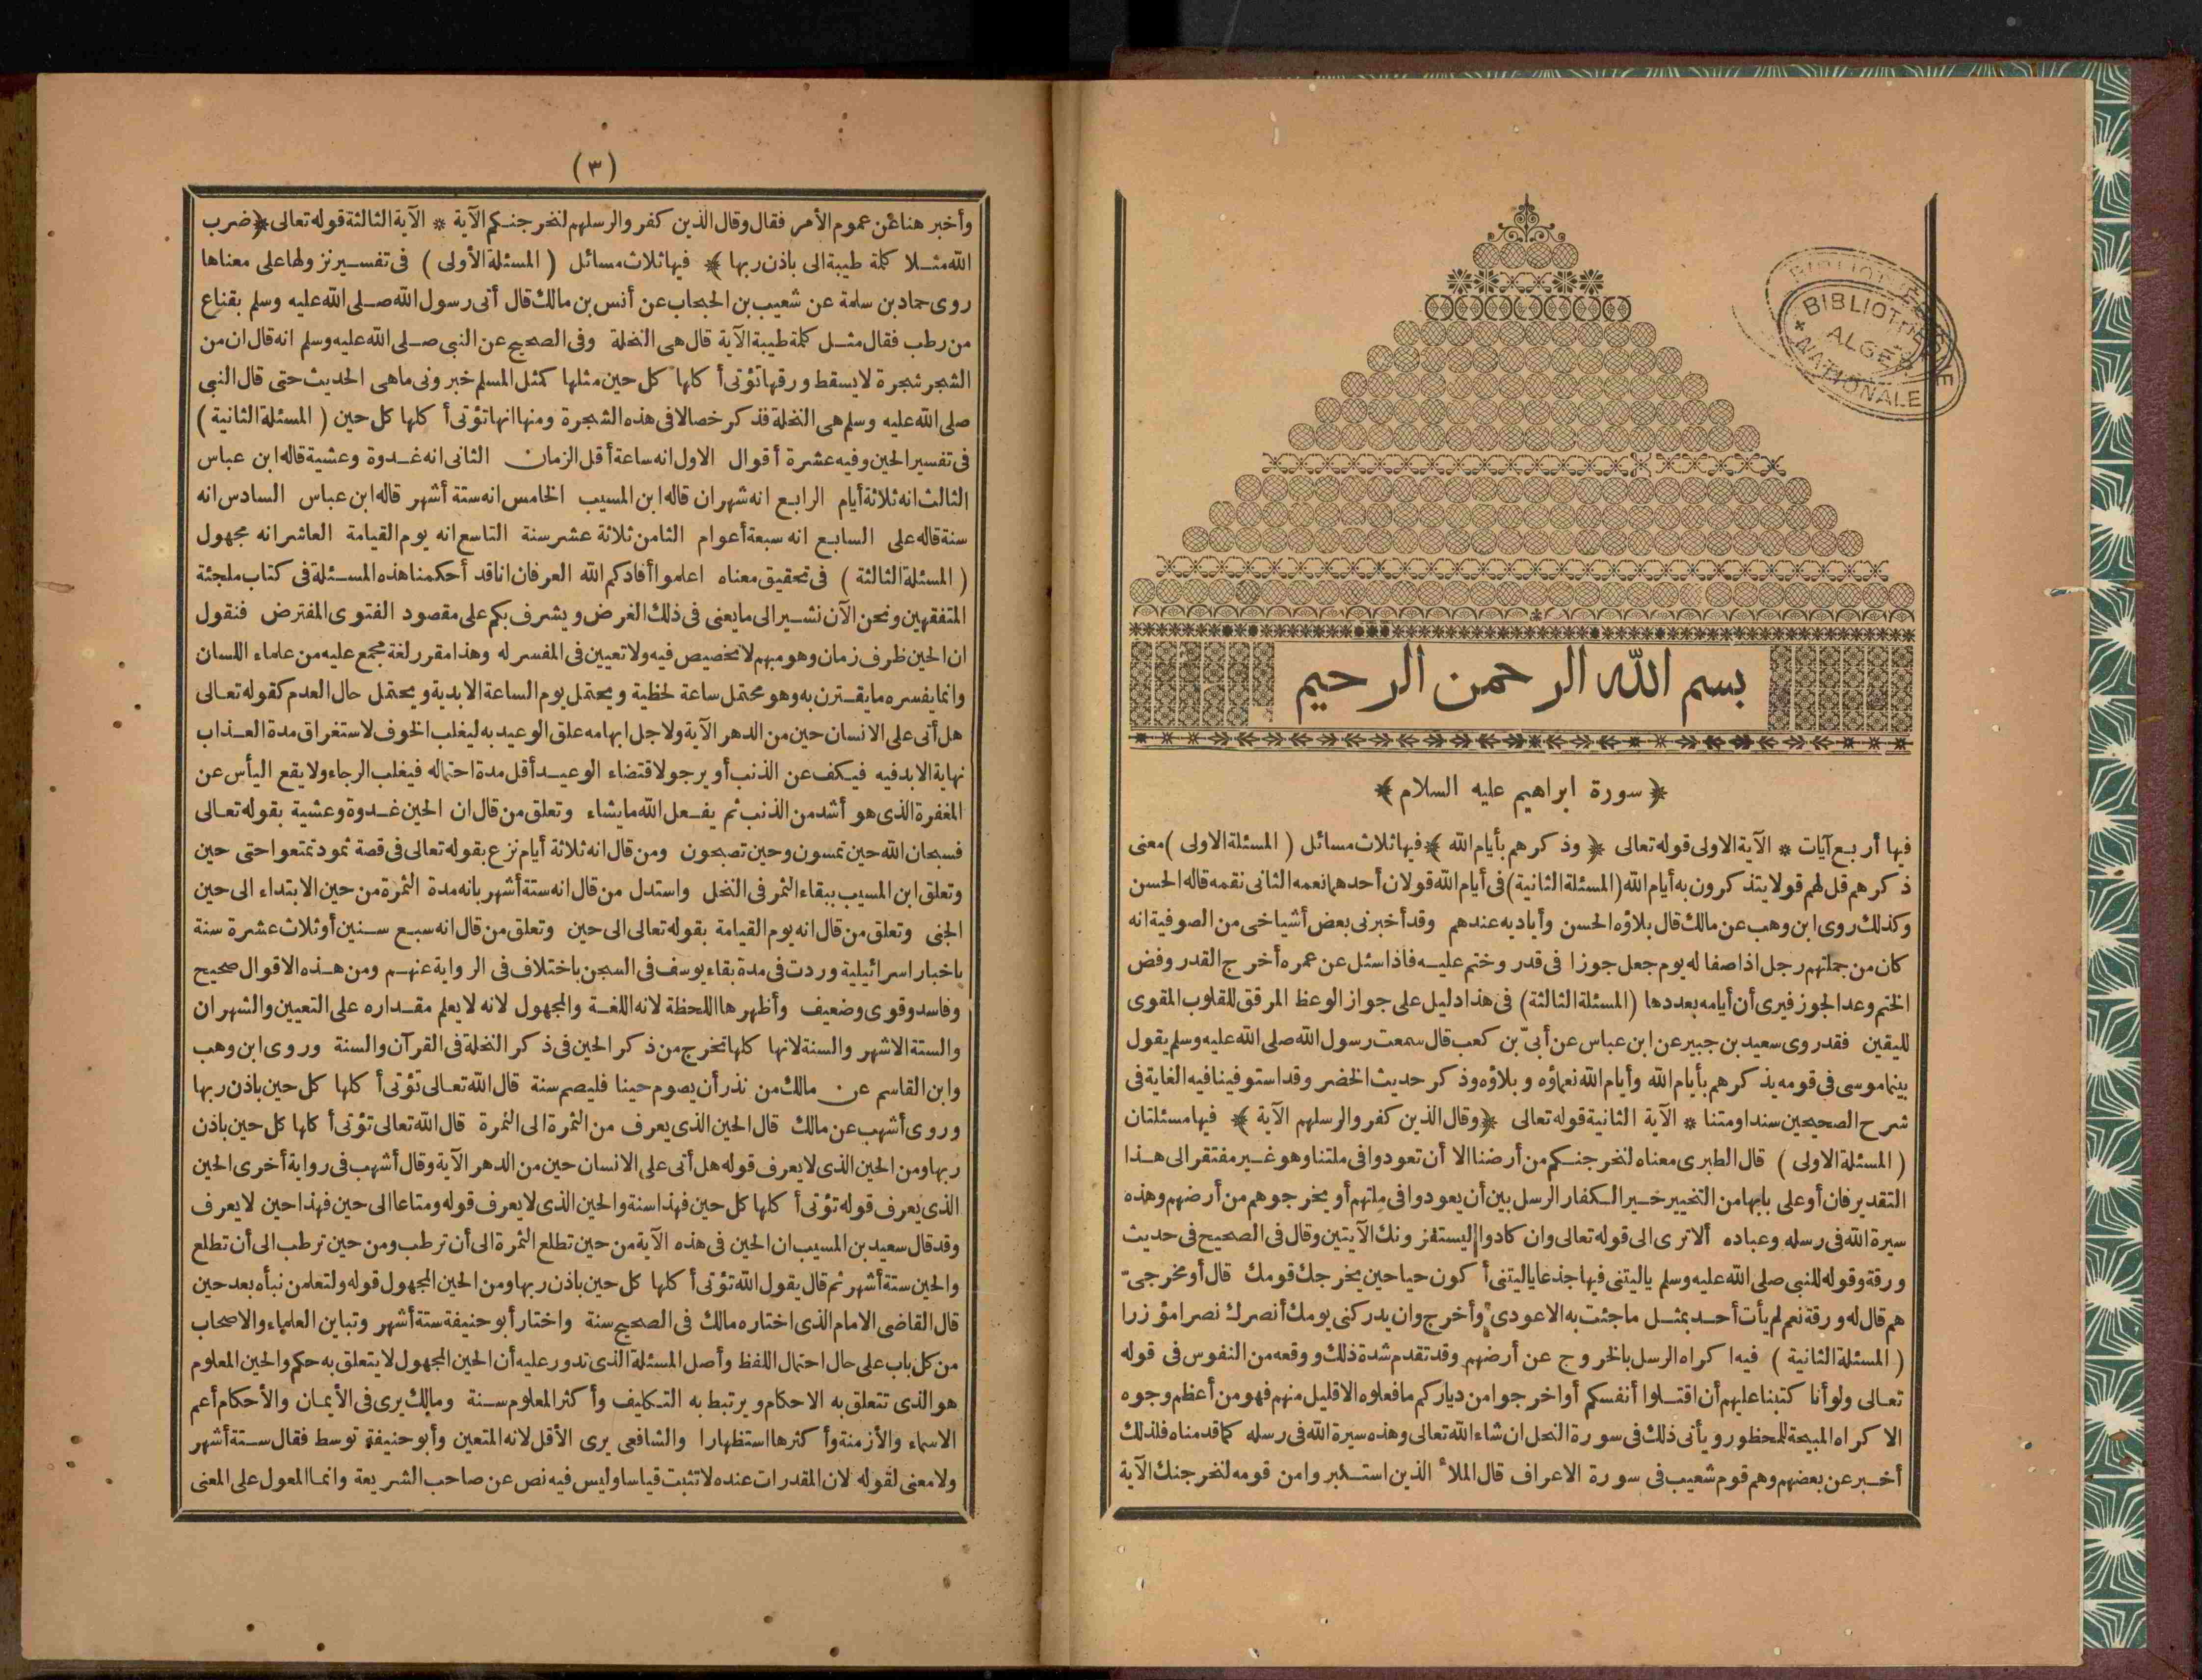 BIBLIOTHEQUE
NATIONALE
ALGER
بسم الله الرحمن الرحيم
﴿ سورة ابراهيم عليه السلام ﴾
فيها أربع آيات * الآية الاولى قوله تعالى ﴿ وذكرهم بأيام الله ﴾ فيها ثلاث مسائل ( المسئلة الاولى ) معنى
ذكرهم قل لهم قولا يتذكرون به أيام الله ( المسئلة الثانية ) فى أيام الله قولان أحدهما نعمه الثانى نقمه قاله الحسن
وكذلك روى ابن وهب عن مالك قال بلاؤه الحسن وأياديه عندهم وقد أخبرنى بعض أشياخى من الصوفية انه
كان من جملتهم رجل اذا صفا له يوم جعل جوزا فى قدر وختم عليه فاذا سئل عن عمره أخرج القدر وفض
الختم وعد الجوز فيرى أن أيامه بعددها ( المسئلة الثالثة ) فى هذا دليل على جواز الوعظ المرقق للقلوب المقوى
لليقين فقد روى سعيد بن جبير عن ابن عباس عن أبىّ بن كعب قال سمعت رسول الله صلى الله عليه وسلم يقول
بينما موسى فى قومه يذكرهم بأيام الله وأيام الله نعماؤه وبلاؤه وذكر حديث الخضر وقد استوفينا فيه الغاية فى
شرح الصحيحين سندا ومتنا * الآية الثانية قوله تعالى ﴿ وقال الذين كفروا لرسلهم الآية ﴾ فيها مسئلتان
( المسئلة الاولى ) قال الطبرى معناه لنخرجنكم من أرضنا الا أن تعودوا فى ملتنا وهو غير مفتقر الى هذا
التقدير فان أو على بابها من التخيير خير الكفار الرسل بين أن يعودوا فى ملتهم أو يخرجوهم من أرضهم وهذه
سيرة الله فى رسله وعباده ألا ترى الى قوله تعالى وان كادوا ليستفزونك الآيتين وقال فى الصحيح فى حديث
ورقة وقوله للنبى صلى الله عليه وسلم ياليتنى فيها جذعا ياليتنى أكون حيا حين يخرجك قومك قال أو مخرجىّ
هم قال له ورقة نعم لم يأت أحد بمثل ما جئت به الا عودى وأخرج وان يدركنى يومك أنصرك نصرا مؤزرا
( المسئلة الثانية ) فيه ا كراه الرسل بالخروج عن أرضهم وقد تقدم شدة ذلك ووقعه من النفوس فى قوله
تعالى ولو أنا كتبنا عليهم أن اقتلوا أنفسكم أو اخرجوا من دياركم ما فعلوه الا قليل منهم فهو من أعظم وجوه
الاكراه المبيحة للمحظور ويأتى ذلك فى سورة النحل ان شاء الله تعالى وهذه سيرة الله فى رسله كما قدمناه فلذلك
أخبر عن بعضهم وهم قوم شعيب فى سورة الاعراف قال الملأ الذين استكبروا من قومه لنخرجنك الآية
(٣)
وأخبر هنا عن عموم الأمر فقال وقال الذين كفروا لرسلهم لنخرجنكم الآية * الآية الثالثة قوله تعالى ﴿ ضرب
الله مثلا كلمة طيبة الى باذن ربها ﴾ فيها ثلاث مسائل ( المسئلة الأولى ) فى تفسير نزولها على معناها
روى حماد بن سلمة عن شعيب بن الحبحاب عن أنس بن مالك قال أتى رسول الله صلى الله عليه وسلم بقناع
من رطب فقال مثل كلمة طيبة الآية قال هى النخلة وفى الصحيح عن النبى صلى الله عليه وسلم انه قال ان من
الشجر شجرة لا يسقط ورقها تؤتى أكلها كل حين مثلها كمثل المسلم خبرونى ما هى الحديث حتى قال النبى
صلى الله عليه وسلم هى النخلة فذكر خصالا فى هذه الشجرة ومنها انها تؤتى أكلها كل حين ( المسئلة الثانية )
فى تفسير الحين وفيه عشرة أقوال الاول انه ساعة أقل الزمان الثانى انه غدوة وعشية قاله ابن عباس
الثالث انه ثلاثة أيام الرابع انه شهران قاله ابن المسيب الخامس انه ستة أشهر قاله ابن عباس السادس انه
سنة قاله على السابع انه سبعة أعوام الثامن ثلاثة عشر سنة التاسع انه يوم القيامة العاشر انه مجهول
( المسئلة الثالثة ) فى تحقيق معناه اعلموا أفادكم الله العرفان انا قد أحكمنا هذه المسئلة فى كتاب ملجئة
المتفقهين ونحن الآن نشير الى ما يعنى فى ذلك الغرض ويشرف بكم على مقصود الفتوى المفترض فنقول
ان الحين ظرف زمان وهو مبهم لا تخصيص فيه ولا تعيين فى المفسر له وهذا مقرر لغة مجمع عليه من علماء اللسان
وانما يفسره ما يقترن به وهو محتمل ساعة لحظية ويحتمل يوم الساعة الابدية ويحتمل حال العدم كقوله تعالى
هل أتى على الانسان حين من الدهر الآية ولاجل ابهامه علق الوعيد به ليغلب الخوف لاستغراق مدة العذاب
نهاية الابد فيه فيكف عن الذنب أو يرجو لاقتضاء الوعيد أقل مدة احتماله فيغلب الرجاء ولا يقع اليأس عن
المغفرة الذى هو أشد من الذنب ثم يفعل الله ما يشاء وتعلق من قال ان الحين غدوة وعشية بقوله تعالى
فسبحان الله حين تمسون وحين تصبحون ومن قال انه ثلاثة أيام نزع بقوله تعالى فى قصة ثمود تمتعوا حتى حين
وتعلق ابن المسيب ببقاء الثمر فى النخل واستدل من قال انه ستة أشهر بانه مدة الثمرة من حين الابتداء الى حين
الجنى وتعلق من قال انه يوم القيامة بقوله تعالى الى حين وتعلق من قال انه سبع سنين أو ثلاث عشرة سنة
باخبار اسرائيلية وردت فى مدة بقاء يوسف فى السجن باختلاف فى الرواية عنهم ومن هذه الاقوال صحيح
وفاسد وقوى وضعيف وأظهرها اللحظة لانه اللغة والمجهول لانه لا يعلم مقداره على التعيين والشهران
والستة الاشهر والسنة لانها كلها تخرج من ذكر الحين فى ذكر النخلة فى القرآن والسنة وروى ابن وهب
وابن القاسم عن مالك من نذر أن يصوم حينا فليصم سنة قال الله تعالى تؤتى أكلها كل حين باذن ربها
وروى أشهب عن مالك قال الحين الذى يعرف من الثمرة الى الثمرة قال الله تعالى تؤتى أكلها كل حين باذن
ربها ومن الحين الذى لا يعرف قوله هل أتى على الانسان حين من الدهر الآية وقال أشهب فى رواية أخرى الحين
الذى يعرف قوله تؤتى أكلها كل حين فهذا سنة والحين الذى لا يعرف قوله ومتاعا الى حين فهذا حين لا يعرف
وقد قال سعيد بن المسيب ان الحين فى هذه الآية من حين تطلع الثمرة الى أن ترطب ومن حين ترطب الى أن تطلع
والحين ستة أشهر ثم قال يقول الله تؤتى أكلها كل حين باذن ربها ومن الحين المجهول قوله ولتعلمن نبأه بعد حين
قال القاضى الامام الذى اختاره مالك فى الصحيح سنة واختار أبو حنيفة ستة أشهر وتباين العلماء والاصحاب
من كل باب على حال احتمال اللفظ وأصل المسئلة الذى تدور عليه أن الحين المجهول لا يتعلق به حكم والحين المعلوم
هو الذى تتعلق به الاحكام ويرتبط به التكليف وأكثر المعلوم سنة ومالك يرى فى الأيمان والأحكام أعم
الاسماء والأزمنة وأكثرها استظهارا والشافعى يرى الأقل لانه المتعين وأبو حنيفة توسط فقال ستة أشهر
ولا معنى لقوله لان المقدرات عنده لا تثبت قياسا وليس فيه نص عن صاحب الشريعة وانما المعول على المعنى